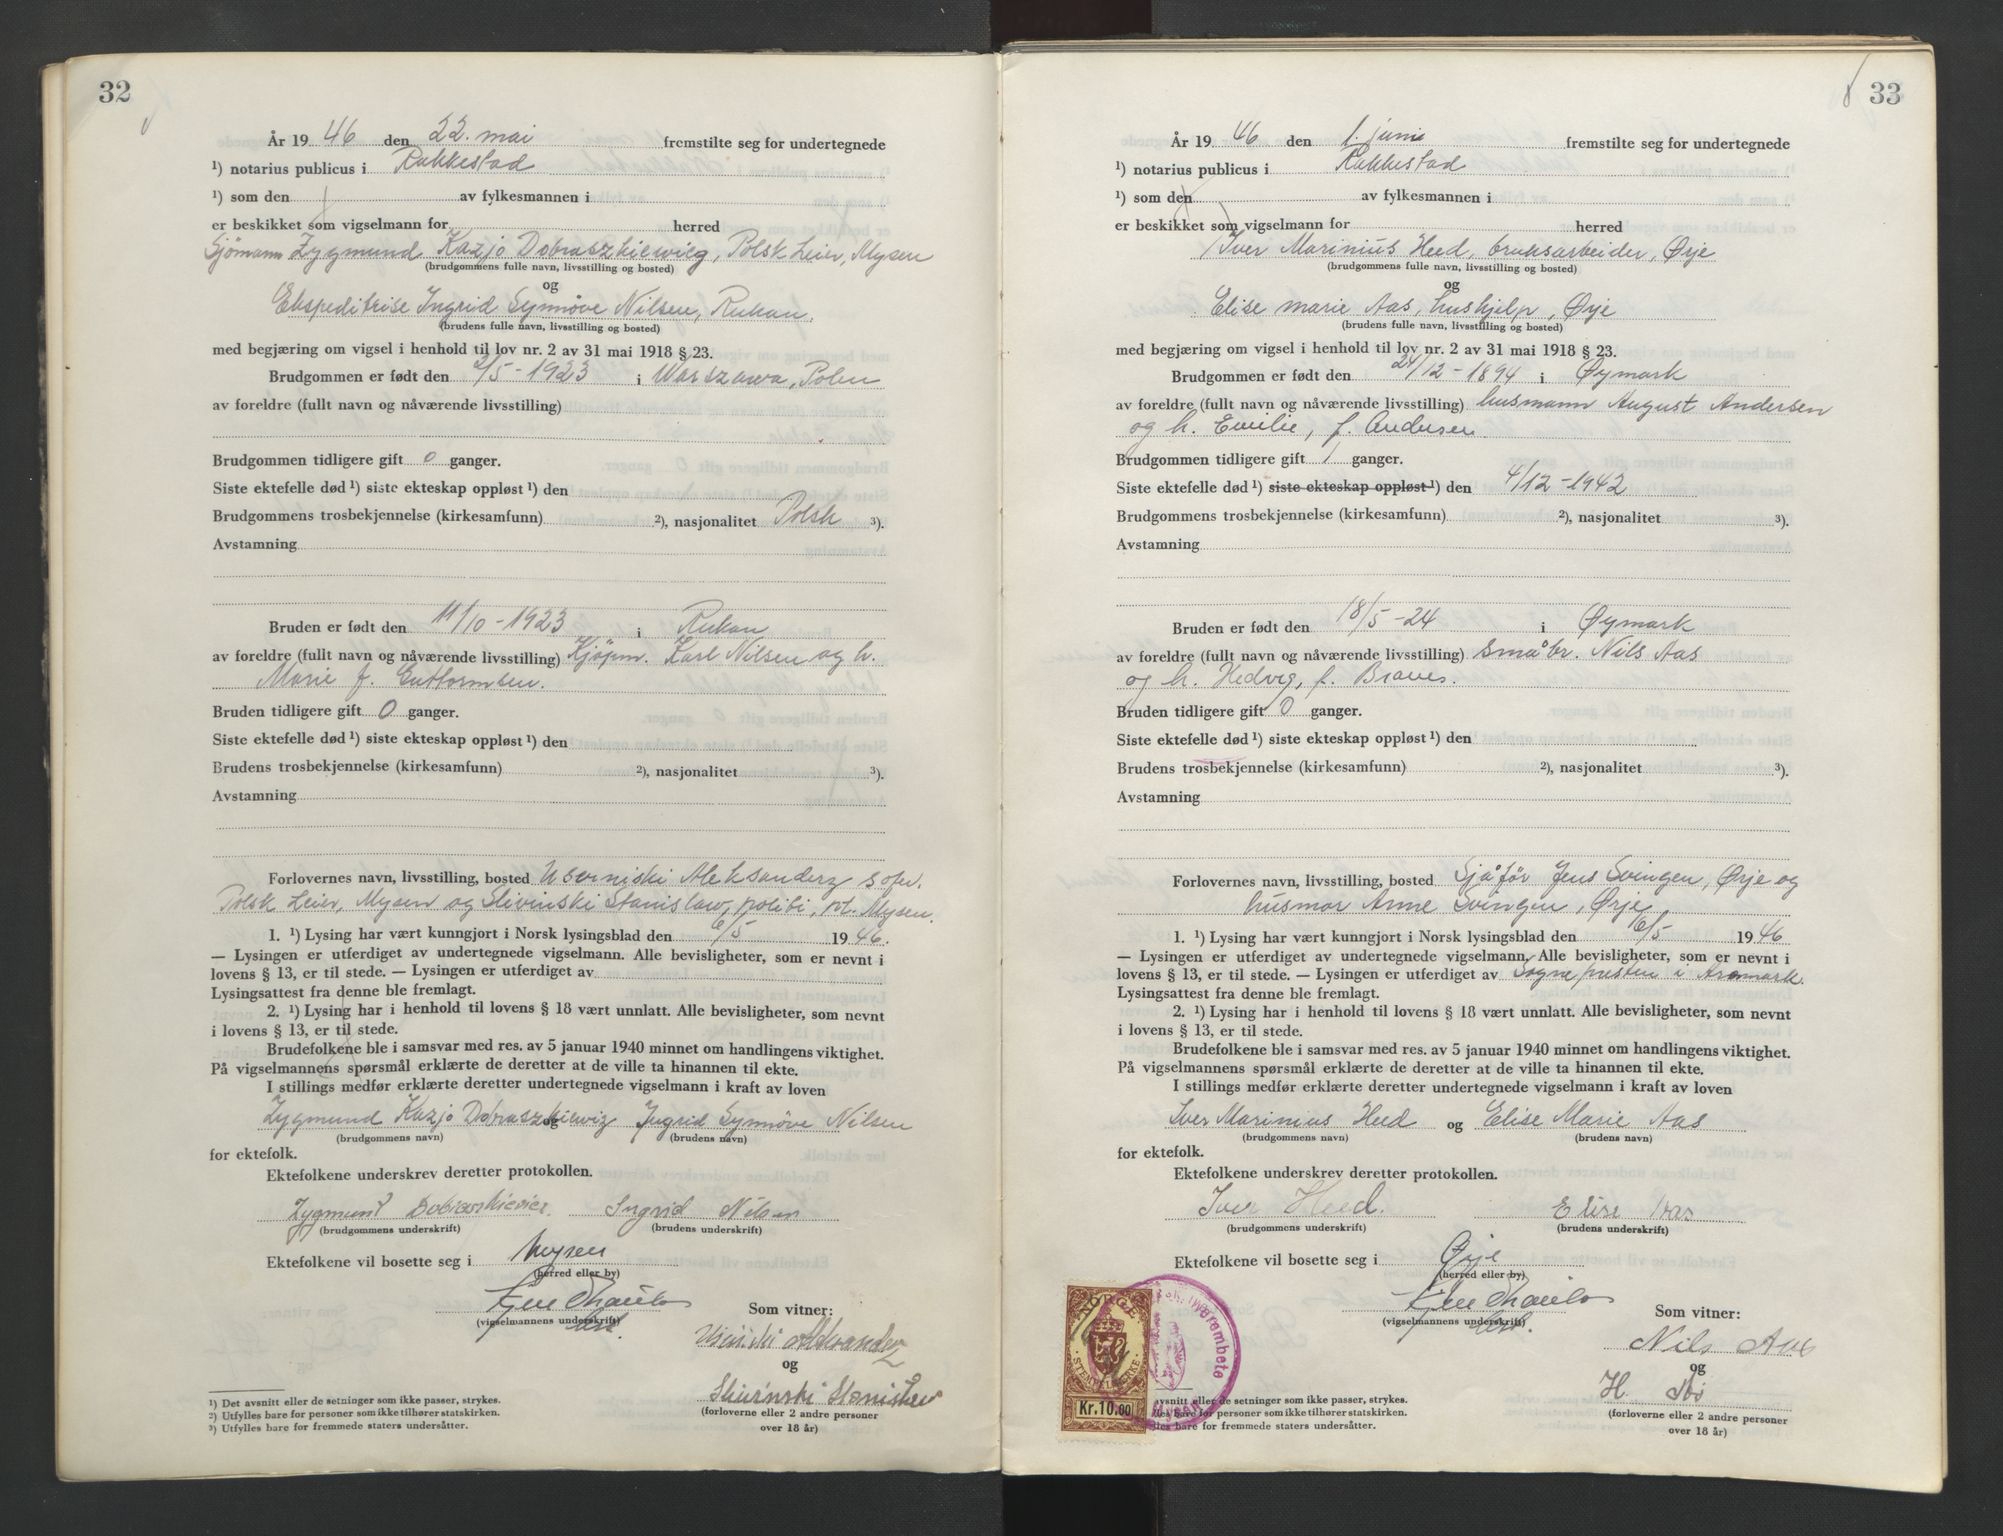 32
År 19 46 den 22. mai fremstilte seg for undertegnede
¹) notarius publicus i Rakkestad
¹) som den av fylkesmannen i
er beskikket som vigselmann for herred
Sjömann Zygmund Kazjo Dobraszkiewicg, Polsk Leir, Mysen
(brudgommens fulle navn, livsstilling og bosted)
og
Ekspeditrise Ingrid Synnöve Nilsen, Rukan.
(brudens fulle navn, livsstilling og bosted)
med begjæring om vigsel i henhold til lov nr. 2 av 31 mai 1918 § 23.
Brudgommen er født den 2/5 - 1923 i Warszawa, Polen
av foreldre (fullt navn og nåværende livsstilling)
Brudgommen tidligere gift 0 ganger.
Siste ektefelle død ¹) siste ekteskap oppløst ¹) den
Brudgommens trosbekjennelse (kirkesamfunn) ²), nasjonalitet Polsk ³).
Avstamning
Bruden er født den 11/10 - 1923 i Rukan
av foreldre (fullt navn og nåværende livsstilling) Kjöpm. Karl Nilsen og h.
Marie f. Guttormsen.
Bruden tidligere gift 0 ganger.
Siste ektefelle død ¹) siste ekteskap oppløst ¹) den
Brudens trosbekjennelse (kirkesamfunn) ²), nasjonalitet ³).
Avstamning
Forlovernes navn, livsstilling, bosted Aleksanderz
Polsk Leir, Mysen og Slivinski Stanislaw, politi, pol. Mysen.
1. ¹) Lysing har vært kunngjort i Norsk lysingsblad den 6/5 1946.
— Lysingen er utferdiget av undertegnede vigselmann. Alle bevisligheter, som er nevnt i
lovens § 13, er til stede. — Lysingen er utferdiget av
Lysingsattest fra denne ble fremlagt.
2. ¹) Lysing har i henhold til lovens § 18 vært unnlatt. Alle bevisligheter, som nevnt
i lovens § 13, er til stede.
Brudefolkene ble i samsvar med res. av 5 januar 1940 minnet om handlingens viktighet.
På vigselmannens spørsmål erklærte de deretter at de ville ta hinannen til ekte.
I stillings medfør erklærte deretter undertegnede vigselmann i kraft av loven
Zygmund Kazjo Dobraszkiewiz og Ingrid Synnöve Nilsen
(brudgommens navn) (brudens navn)
for ektefolk.
Ektefolkene underskrev deretter protokollen.
Zygmund Dobraskievier. Ingrid Nilsen
(brudgommens underskrift) (brudens underskrift)
Ektefolkene vil bosette seg i Mysen
(herred eller by)
(vigselmannens underskrift)
Som vitner:
og
Slivinski Stanislew
(forloverne eller 2 andre personer
over 18 år)
¹) Det avsnitt eller de setninger som ikke passer, strykes.
²) Utfylles bare for personer som ikke tilhører statskirken.
³) Utfylles bare for fremmede staters undersåtter.
33
År 19 46 den 1. juni fremstilte seg for undertegnede
¹) notarius publicus i Rakkestad
¹) som den av fylkesmannen i
er beskikket som vigselmann for herred
Iver Marinius Heed, bruksarbeider, Ørje
(brudgommens fulle navn, livsstilling og bosted)
og
Elise Marie Aas, hushjelp, Ørje
(brudens fulle navn, livsstilling og bosted)
med begjæring om vigsel i henhold til lov nr. 2 av 31 mai 1918 § 23.
Brudgommen er født den 24/12 - 1894 i Øymark
av foreldre (fullt navn og nåværende livsstilling) husmann August Andersen
og h. Emilie, f. Andersen.
Brudgommen tidligere gift 1 ganger.
Siste ektefelle død ¹) siste ekteskap oppløst ¹) den 4/12 - 1942
Brudgommens trosbekjennelse (kirkesamfunn) ²), nasjonalitet ³).
Avstamning
Bruden er født den 18/5 - 24 i Øymark
av foreldre (fullt navn og nåværende livsstilling) småbr. Nils Aas
og h. Hedvig, f. Braues.
Bruden tidligere gift 0 ganger.
Siste ektefelle død ¹) siste ekteskap oppløst ¹) den
Brudens trosbekjennelse (kirkesamfunn) ²), nasjonalitet ³).
Avstamning
Forlovernes navn, livsstilling, bosted Sjåför Jens Svingen, Ørje og
husmor Anne Svingen, Ørje
1. ¹) Lysing har vært kunngjort i Norsk lysingsblad den 16/5 1946
— Lysingen er utferdiget av undertegnede vigselmann. Alle bevisligheter, som er nevnt i
lovens § 13, er til stede. — Lysingen er utferdiget av Sognepresten i Aremark.
Lysingsattest fra denne ble fremlagt.
2. ¹) Lysing har i henhold til lovens § 18 vært unnlatt. Alle bevisligheter, som nevnt
i lovens § 13, er til stede.
Brudefolkene ble i samsvar med res. av 5 januar 1940 minnet om handlingens viktighet.
På vigselmannens spørsmål erklærte de deretter at de ville ta hinannen til ekte.
I stillings medfør erklærte deretter undertegnede vigselmann i kraft av loven
Iver Marinius Heed og Elise Marie Aas
(brudgommens navn) (brudens navn)
for ektefolk.
Ektefolkene underskrev deretter protokollen.
Iver Heed. Elise Aas
(brudgommens underskrift) (brudens underskrift)
Ektefolkene vil bosette seg i Ørje
(herred eller by)
(vigselmannens underskrift)
Som vitner:
Nils Aas
og
H.
(forloverne eller 2 andre personer
over 18 år)
NORGE
STEMPELMERKE
Kr. 10.00
avsnitt eller de setninger som ikke passer, strykes.
les bare for personer som ikke tilhører statskirken.
les bare for fremmede staters undersåtter.